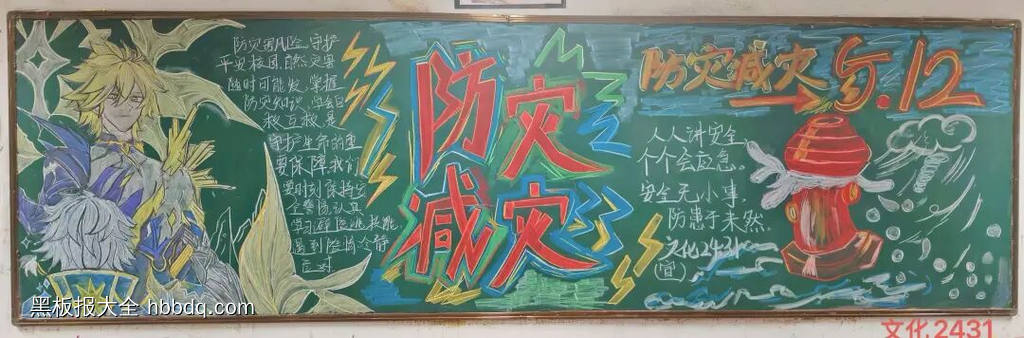 防灾害风险,守护
平安校园,自然灾害
随时可能发,掌握
防灾知识,学会自
救互救是
守护生命的重
要保障,我们
要时刻保持安
全警惕,认真
学习避险技能
遇到险情冷静
应对
防灾
减灾
防灾减灾 5.12
人人讲安全,
个个会应急。
安全无小事,
防患于未然
文化2431
(宣)
黑板报大全 hbbdq.com
文化2431